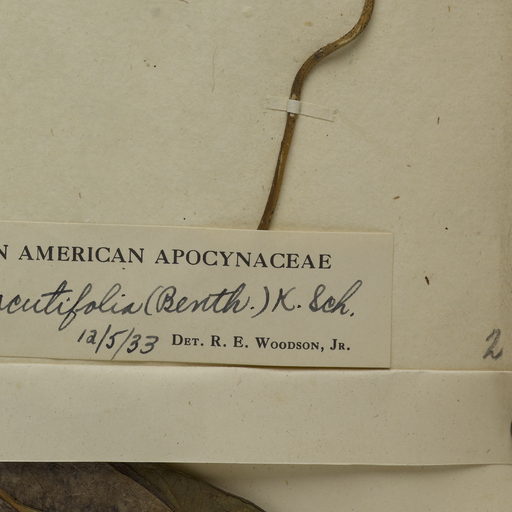 N AMERICAN APOCYNACEAE
acutifolia (Benth.) K. Sch.
12/5/33 DET. R. E. WOODSON, JR.
2